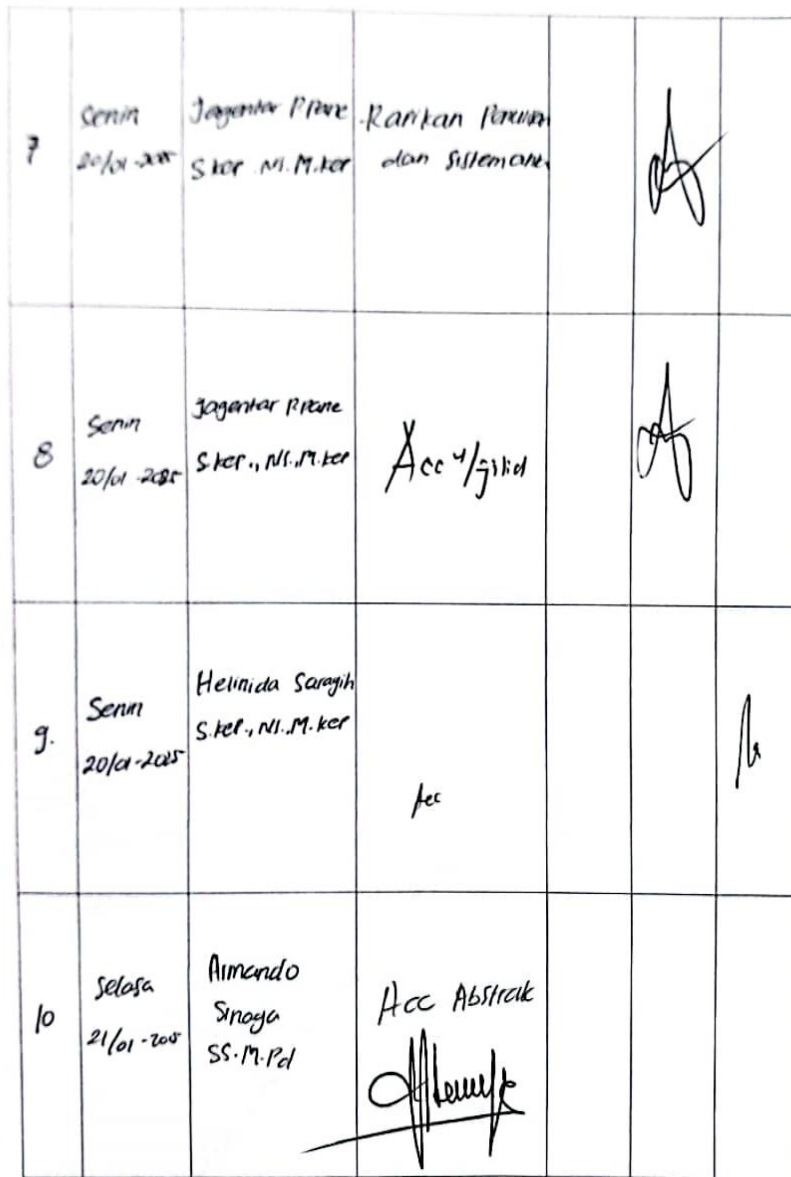 7
Senin
20/01-2025
Jagentar P Pane
S.kep .Ns. M.kep
-Rapikan Penulisan
dan Sistematik
8
Senin
20/01-2025
Jagentar P.Pane
S.kep., Ns., M.kep
Acc u/jilid
9.
Senin
20/01-2025
Helinida Saragih
S.kep., Ns., M.kep
Acc
10
Selasa
21/01-2025
Armando
Sinaga
SS.M.Pd
Acc Abstrak